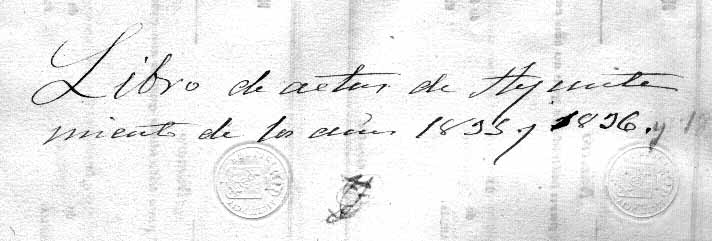 Libro de actas de Ayunta
miento de los años 1835 y 1836. y